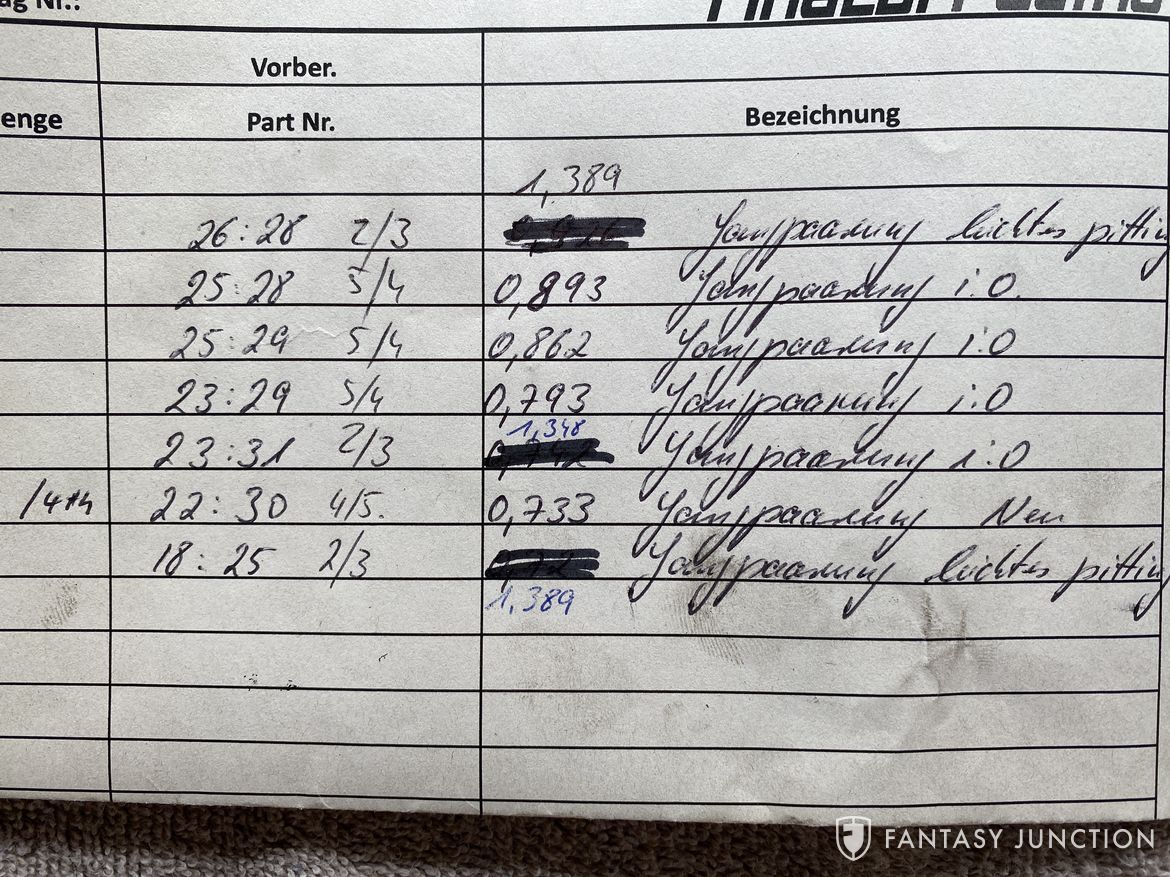 Nr.:
Vorber.
enge Part Nr. Bezeichnung
1,389
26:28 2/3 Gangpaarung leichtes pitting
25:28 5/4 0,893 Gangpaarung i.O.
25:29 5/4 0,862 Gangpaarung i.O
23:29 5/4 0,793 Gangpaarung i.O
1,348
23:31 2/3 Gangpaarung i.O
/4th 22:30 4/5. 0,733 Gangpaarung Neu
18:25 2/3 Gangpaarung leichtes pitting
1,389
FANTASY JUNCTION